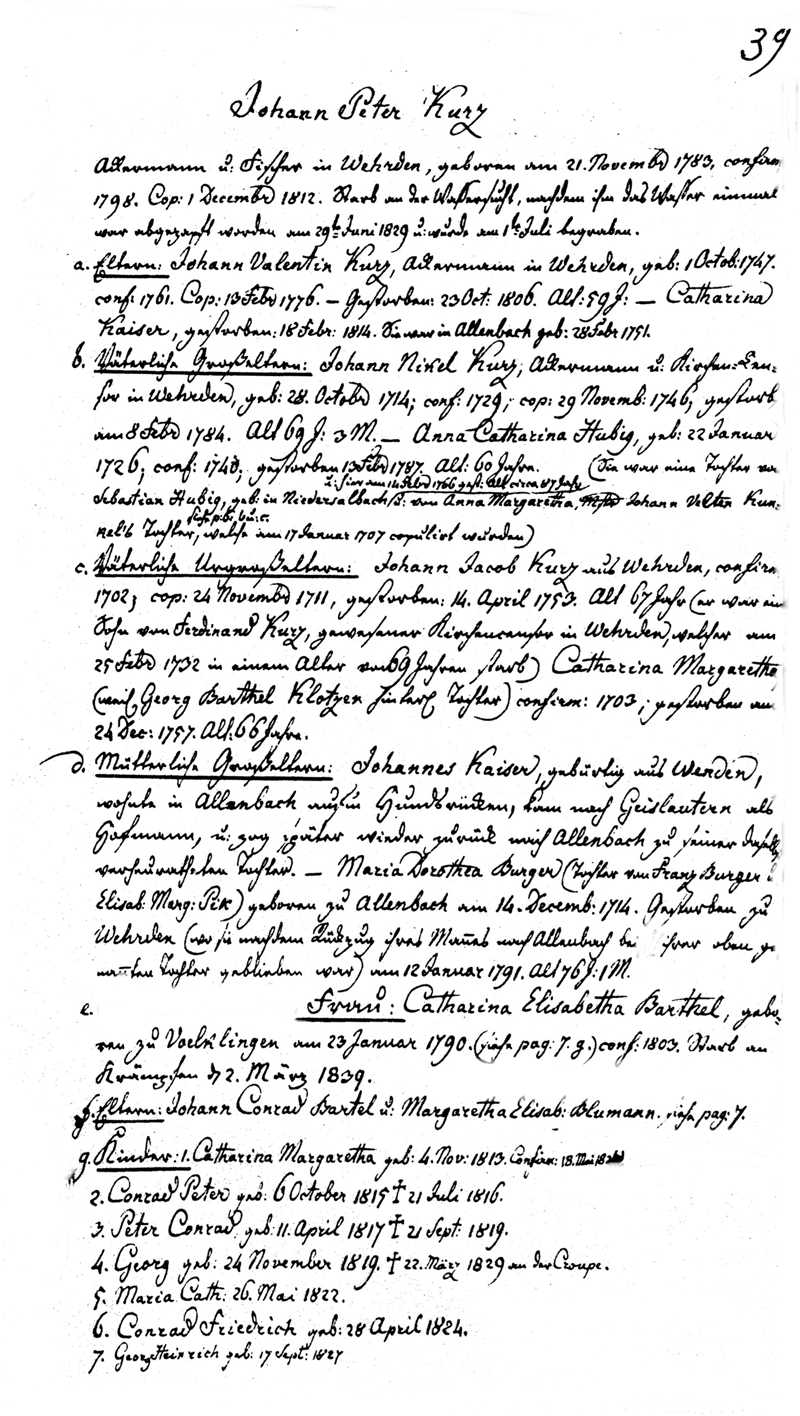 39
Johann Peter Kurz
Akermann u: Fischer in Wehrden, geboren am 21. Novembr 1783, confirm
1798. Cop: 1 Decembr 1812. Starb an der Wassersucht, nachdem ihm das Wasser einmal
war abgezapft worden am 29ten Juni 1829 u: wurde am 1ten Juli begraben.
a. Eltern: Johann Valentin Kurz, Akermann in Wehrden, geb: 1 Octob: 1747.
conf: 1761. Cop: 13 Febr 1776. – Gestorben: 23 Oct: 1806. Alt: 59 J: – Catharina
Kaiser, gestorben: 18 Febr: 1814. Sie war in Allenbach geb: 28 Febr 1751.
b. Väterliche Großeltern: Johann Nikel Kurz, Akermann u: Kirchen=Cen=
sor in Wehrden, geb: 28. Octobr 1714; conf: 1729; cop: 29 Novemb: 1746, gestorb
am 8 Febr 1784. Alt 69 J: 3 M. – Anna Catharina Hubig, geb: 22 Januar
1726; conf: 1740; gestorben 13 Febr 1787. Alt: 60 Jahre. (Sie war eine Tochter vo
u: hier am 14 Febr 1766 gest: Alt circa 87 Jahr
Sebastian Hubig, geb: in Niedersalbach u: von Anna Margaretha, Johann Velten Kun=
siehe p: 61, b u: c.
kel's Tochter, welche am 17 Januar 1707 copulirt wurden)
c. Väterliche Urgroßeltern: Johann Jacob Kurz aus Wehrden, confirm
1702; cop: 24 Novembr 1711, gestorben: 14. April 1753. Alt 67 Jahr (er war ein
Sohn von Ferdinand Kurz, gewesener Kirchencensor in Wehrden, welcher am
25 Febr 1732 in einem Alter von 69 Jahren starb) Catharina Margaretha
(weil. Georg Barthel Klotzen hinterl. Tochter) confirm: 1703; gestorben am
24 Dec: 1757. Alt: 66 Jahre.
d. Mütterliche Großeltern: Johannes Kaiser, gebürtig aus Wenden,
wohnte in Allenbach auf'm Hundsrücken, kam nach Geislautern als
Hofmann, u: zog später wieder zurück nach Allenbach zu seiner daselbst
verheuratheten Tochter. – Maria Dorothea Burger (Tochter von Franz Burger
Elisab: Marg: Pik) geboren zu Allenbach am 14. Decemb: 1714. Gestorben zu
Wehrden (wo sie nach dem Rükzug ihres Mannes nach Allenbach bei ihrer oben ge
nannten Tochter geblieben war) am 12 Januar 1791. Alt 76 J: 1 M.
e. Frau: Catharina Elisabetha Barthel, gebo=
ren zu Voelklingen am 23 Januar 1790. (siehe pag: 7. g.) conf: 1803. Starb an
Krämpfen d 2. März 1839.
f. Eltern: Johann Conrad Bartel u: Margaretha Elisab: Blumann. siehe pag: 7.
g. Kinder: 1. Catharina Margaretha geb: 4. Nov: 1813. Confirm: 18. Mai
2. Conrad Peter geb: 6 October 1815 † 21 Juli 1816.
3. Peter Conrad, geb: 11. April 1817 † 21 Sept: 1819.
4. Georg geb: 24 November 1819. † 22. März 1829 an der Croupe.
5. Maria Cath: 26. Mai 1822.
6. Conrad Friedrich geb: 28 April 1824.
7. Georg Heinrich geb: 17 Sept: 1827